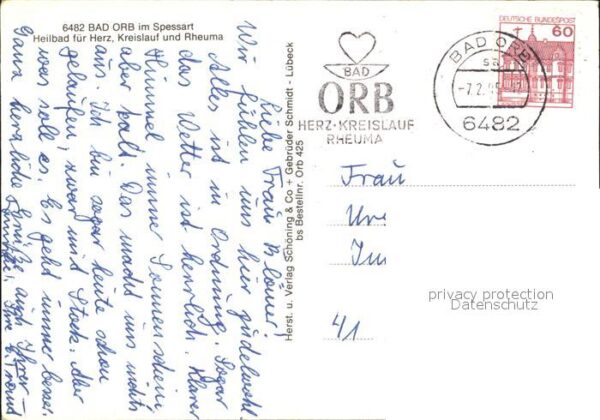 6482 BAD ORB im Spessart
Heilbad für Herz, Kreislauf und Rheuma
Liebe Frau Blauer!
Wir fühlen uns hier pudelwohl.
Alles ist in Ordnung. Sogar
das Wetter ist herrlich. Klarer
Himmel immer Sonnenschein,
aber kalt. Das macht uns nichts
aus. Ich bin sogar heute schon
gelaufen, zwar mit Stock. Aber
was soll es. Es geht immer besser.
Ganz herzliche Grüße auch Ihrer
Ihre
Herst. u. Verlag Schöning & Co + Gebrüder Schmidt - Lübeck
bs Bestellnr. Orb 425
BAD
ORB
HERZ-KREISLAUF
RHEUMA
BAD ORB
6482
DEUTSCHE BUNDESPOST
60
Frau
Im
41
privacy protection
Datenschutz